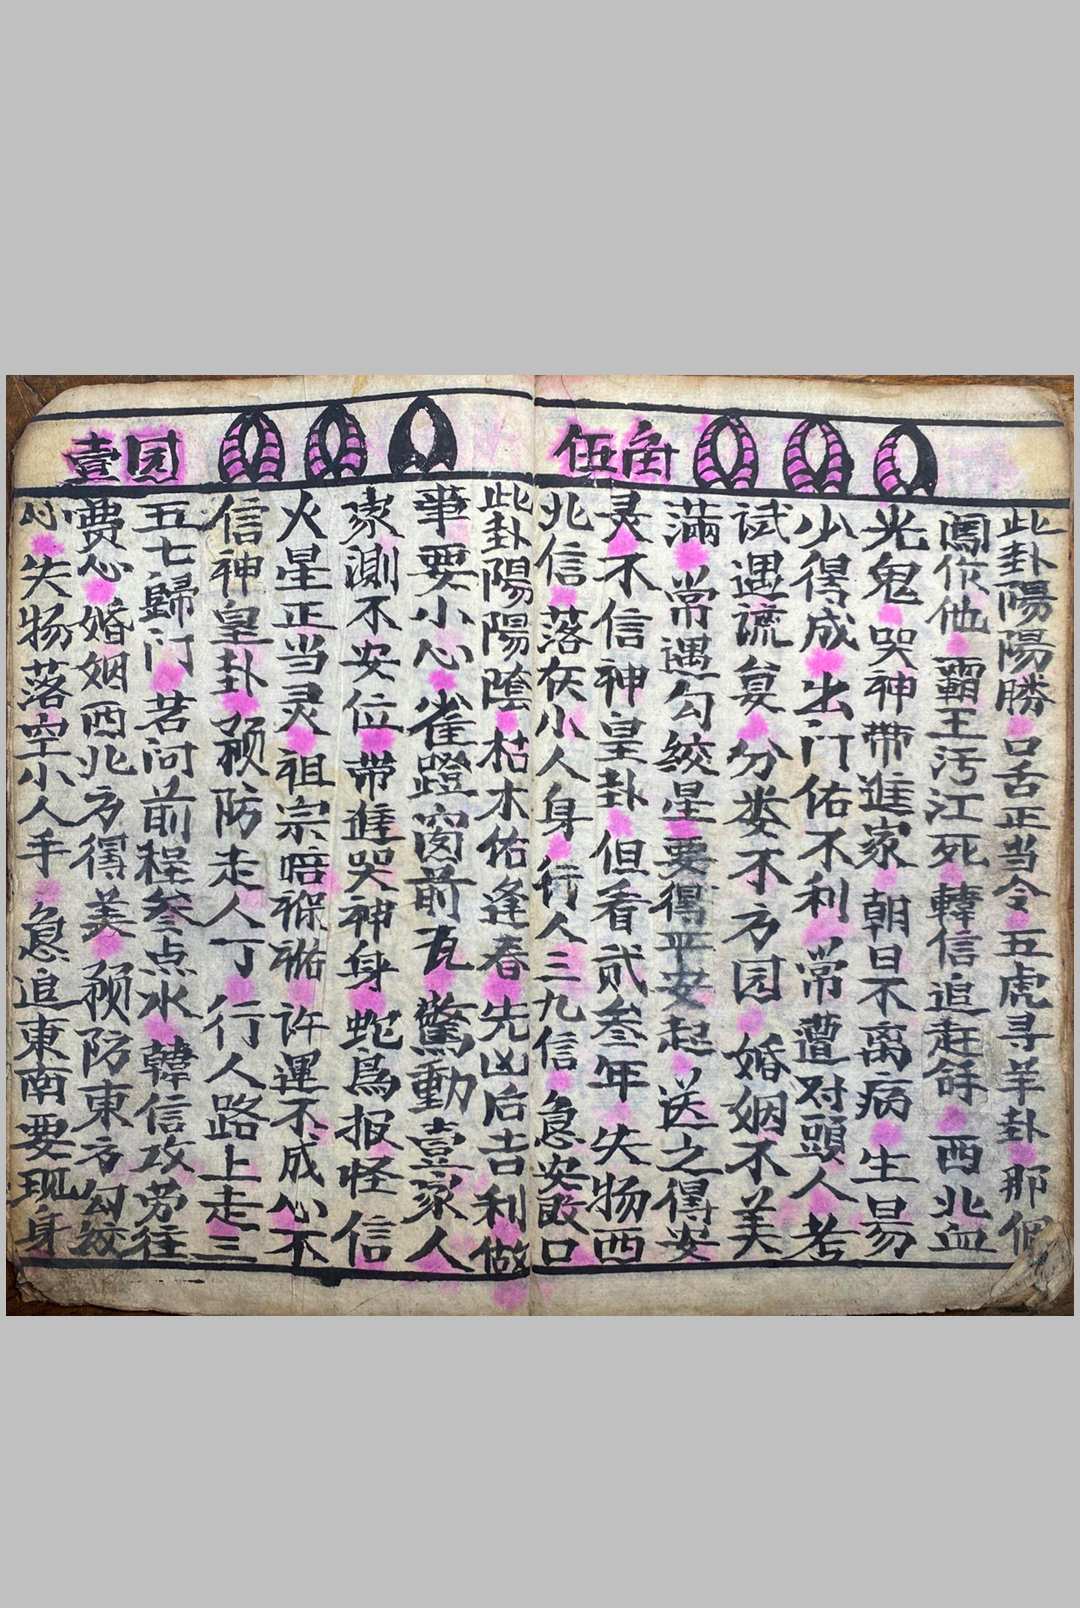 伍角
此卦陽陽勝口舌正当令五虎寻羊卦那個
闖作他霸王污江死韓信追赶餘西北血
光鬼哭神帶進家朝日不离病生易
少得成出门佑不利常遭对頭人考
试遇流年分娄不方园婚姻不美
滿常遇勾绞星要得平安起送之得安
灵不信神皇卦但看贰叁年失物西
北信落在小人身行人三九信急安敢口
壹园
此卦陽陽陰枯木佑逢春先凶后吉利做
事要小心雀蹬窗前瓦驚動壹家人
家測不安位带進哭神身蛇為报怪信
火星正当灵祖宗暗保祐许運不成心不
信神皇卦预防走人丁行人路上走三
五七歸门若问前程叄点水韓信攻劳往
费心婚姻西北方得美预防東方勾绞
心失物落空小人手急追東南要现身